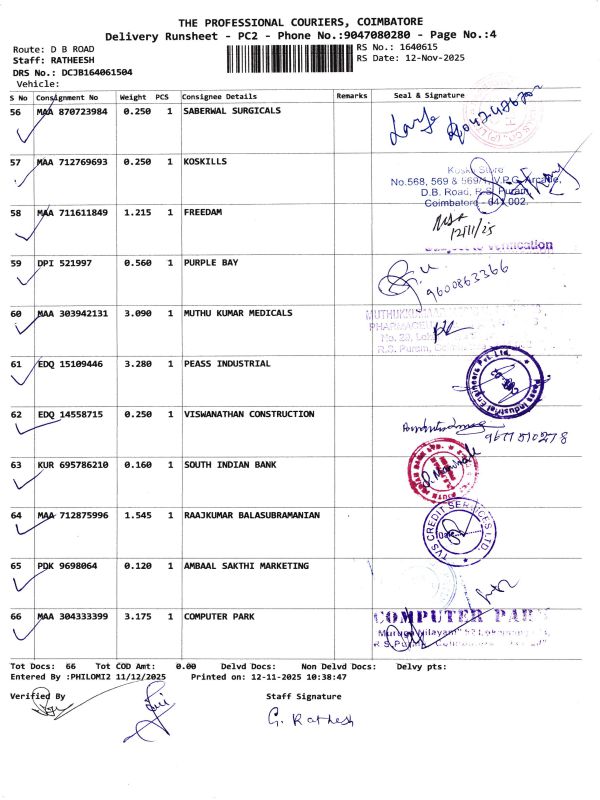 THE PROFESSIONAL COURIERS, COIMBATORE
Delivery Runsheet - PC2 - Phone No.:9047080280 - Page No.:4
Route: D B ROAD
Staff: RATHEESH
DRS No.: DCJB164061504
Vehicle:
RS No.: 1640615
RS Date: 12-Nov-2025
S No Consignment No Weight PCS Consignee Details Remarks Seal & Signature
56 MAA 870723984 0.250 1 SABERWAL SURGICALS
57 MAA 712769693 0.250 1 KOSKILLS
Koskii Store
No.568, 569 & 569/1, V.P.G. Arcade,
D.B. Road, R.S. Puram,
Coimbatore - 641 002.
58 MAA 711611849 1.215 1 FREEDAM
12/11/25
Subject to verification
59 DPI 521997 0.560 1 PURPLE BAY
9600863366
60 MAA 303942131 3.090 1 MUTHU KUMAR MEDICALS
R.S. Puram,
61 EDQ 15109446 3.280 1 PEASS INDUSTRIAL
Peass Industrial Engineers Pvt. Ltd.
62 EDQ 14558715 0.250 1 VISWANATHAN CONSTRUCTION
63 KUR 695786210 0.160 1 SOUTH INDIAN BANK
64 MAA 712875996 1.545 1 RAAJKUMAR BALASUBRAMANIAN
TVS CREDIT SERVICES LTD.
Date
65 PDK 9698064 0.120 1 AMBAAL SAKTHI MARKETING
66 MAA 304333399 3.175 1 COMPUTER PARK
COMPUTER PARK
Tot Docs: 66 Tot COD Amt: 0.00 Delvd Docs: Non Delvd Docs: Delvy pts:
Entered By :PHILOMI2 11/12/2025 Printed on: 12-11-2025 10:38:47
Verified By Staff Signature
G. Rathesh